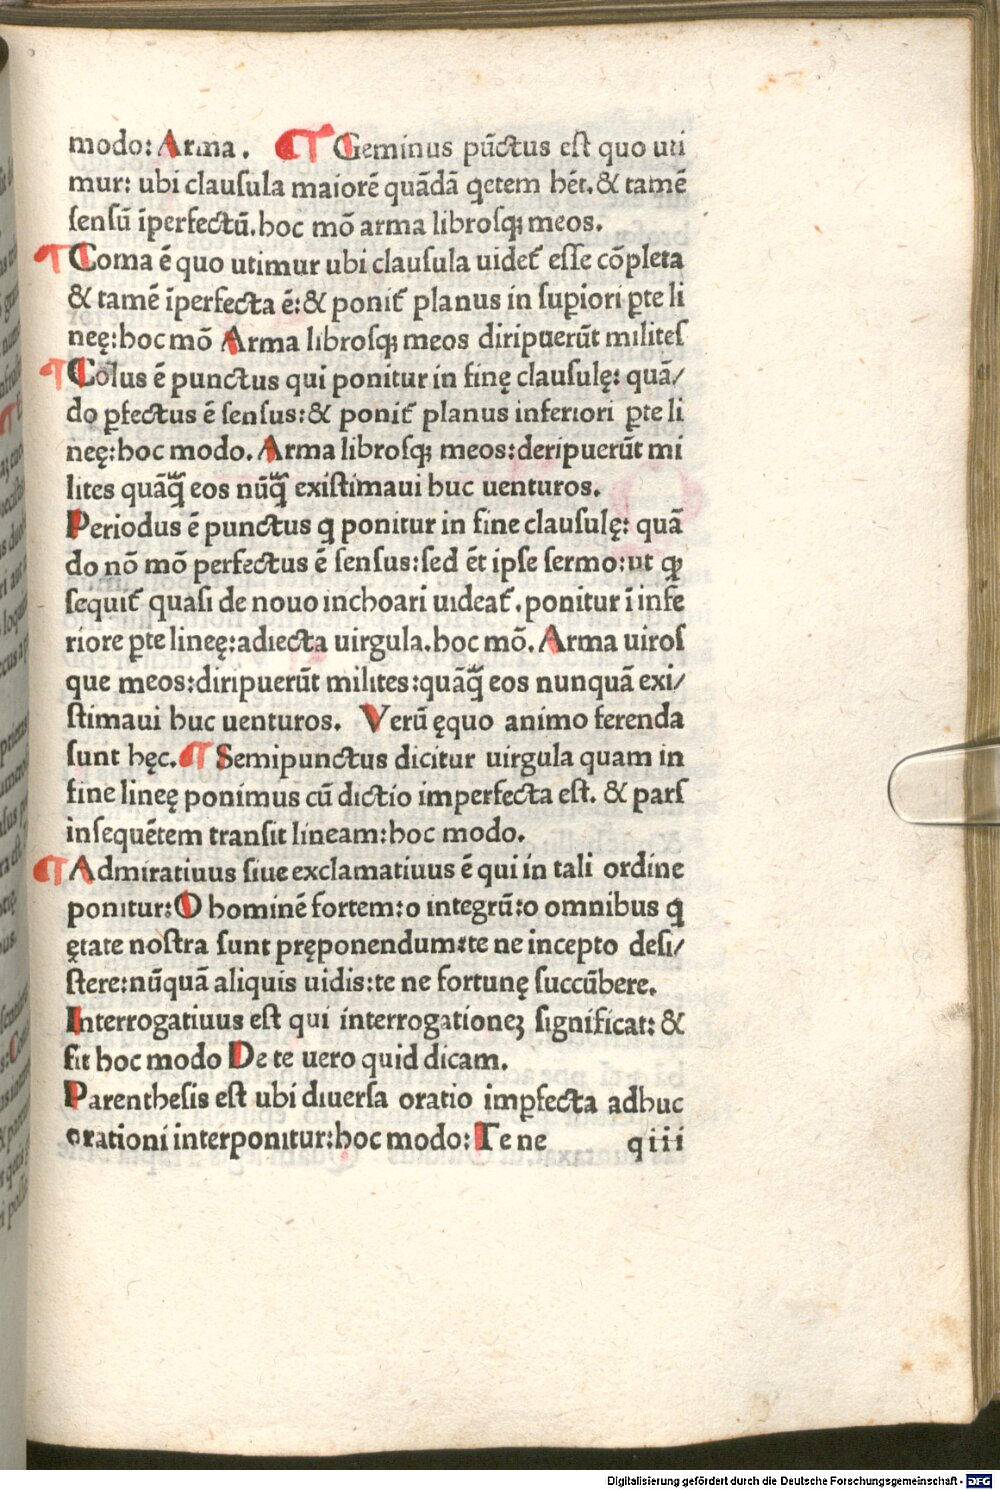 modo: Arma. ¶ Geminus pūctus eſt quo uti
mur: ubi clauſula maiorē quādā q̇etem hēt. & tamē
ſenſū īperfectū. hoc mō arma libroſqꝫ meos.
¶ Coma ē quo utimur ubi clauſula uidet᷑ eſſe cōpleta
& tamē īperfecta ē: & ponit᷑ planus in ſuꝑiori ꝑte li
neę: hoc mō Arma libroſqꝫ meos diripuerūt militeſ
¶ Colus ē punctus qui ponitur in finę clauſulę: quā/
do ꝑfectus ē ſenſus: & ponit᷑ planus inferiori ꝑte li
neę: hoc modo. Arma libroſqꝫ meos: deripuerūt mi
lites quāqᷓ eos nūqᷓ exiſtimaui huc uenturos.
Periodus ē punctus q ponitur in fine clauſulę: quā
do nō mō perfectus ē ſenſus: ſed ēt ipſe ſermo: ut qꝫ
ſequit᷑ quaſi de nouo inchoari uideat᷑. ponitur ī infe
riore ꝑte lineę: adiecta uirgula. hoc mō. Arma uiroſ
que meos: diripuerūt milites: quāqᷓ eos nunquā exi/
ſtimaui huc uenturos. Verū ęquo animo ferenda
ſunt hęc. ¶ Semipunctus dicitur uirgula quam in
fine lineę ponimus cū dictio imperfecta eſt. & parſ
inſequētem tranſit lineam: hoc modo.
¶ Admiratiuus ſiue exclamatiuus ē qui in tali ordine
ponitur: O hominē fortem: o integrū: o omnibus q
ętate noſtra ſunt pręponendum: te ne incepto deſi/
ſtere: nūquā aliquis uidis: te ne fortunę ſuccūbere.
Interrogatiuus eſt qui interrogationeꝫ ſignificat: &
fit hoc modo De te uero quid dicam.
Parentheſis eſt ubi diuerſa oratio imꝑfecta adhuc
orationi interponitur: hoc modo: Te ne qiii
Digitalisierung gefördert durch die Deutsche Forschungsgemeinschaft - DFG